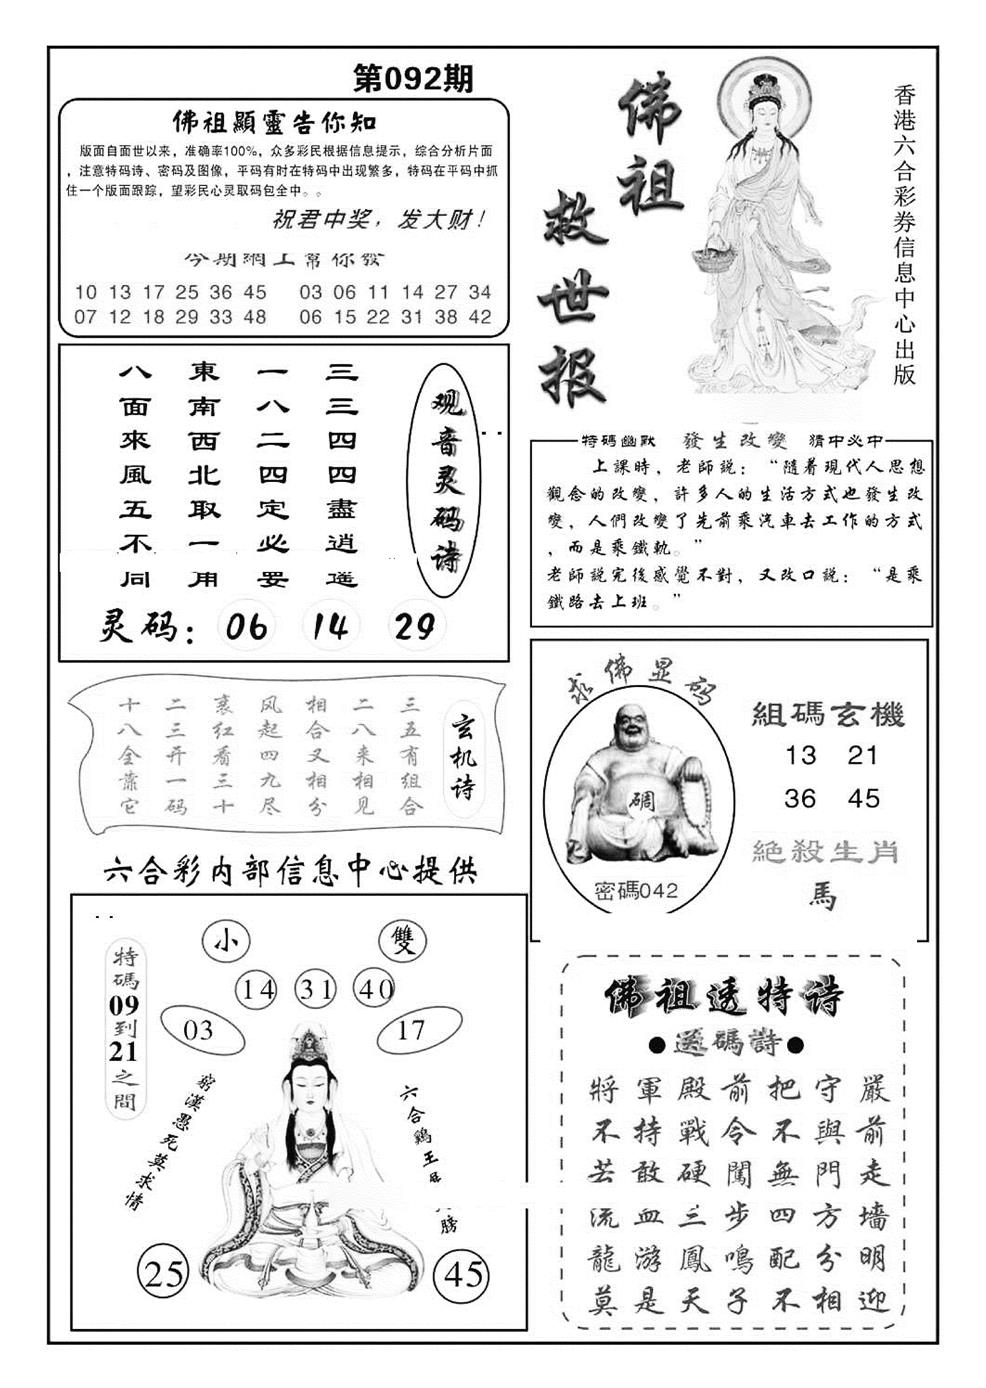 第092期
佛祖顯靈告你知
版面自面世以来，准确率100%，众多彩民根据信息提示，综合分析片面
，注意特码诗、密码及图像，平码有时在特码中出现繁多，特码在平码中抓
住一个版面跟踪，望彩民心灵取码包全中。。
祝君中奖，发大财！
今期網上幫你發
10 13 17 25 36 45 03 06 11 14 27 34
07 12 18 29 33 48 06 15 22 31 38 42
佛祖
救世报
香港六合彩券信息中心出版
观音灵码诗
三三四四盡逍遥
一八二四定必要
東南西北取一用
八面來風五不同
灵码：06 14 29
特碼幽默 發生改變 猜中必中
上課時，老師説：“隨着現代人思想
觀念的改變，許多人的生活方式也發生改
變，人們改變了先前乘汽車去工作的方式
，而是乘鐵軌。”
老師説完後感覺不對，又改口説：“是乘
鐵路去上班。”
玄机诗
三五有组合
二八来相见
相合又相分
风起四九尽
裹红看三十
二三开一码
十八全靠它
求佛显码
碉
密碼042
組碼玄機
13 21
36 45
絕殺生肖
馬
六合彩内部信息中心提供
小
雙
14 31 40
03
17
特碼09到21之間
窮漢愚死莫求情
六合鷄王
膀
25
45
佛祖透特诗
●逐碼詩●
將軍殿前把守嚴
不持戰令不與前
芸敢硬闖無門走
流血三步四方墙
龍游鳳鳴配分明
莫是天子不相迎